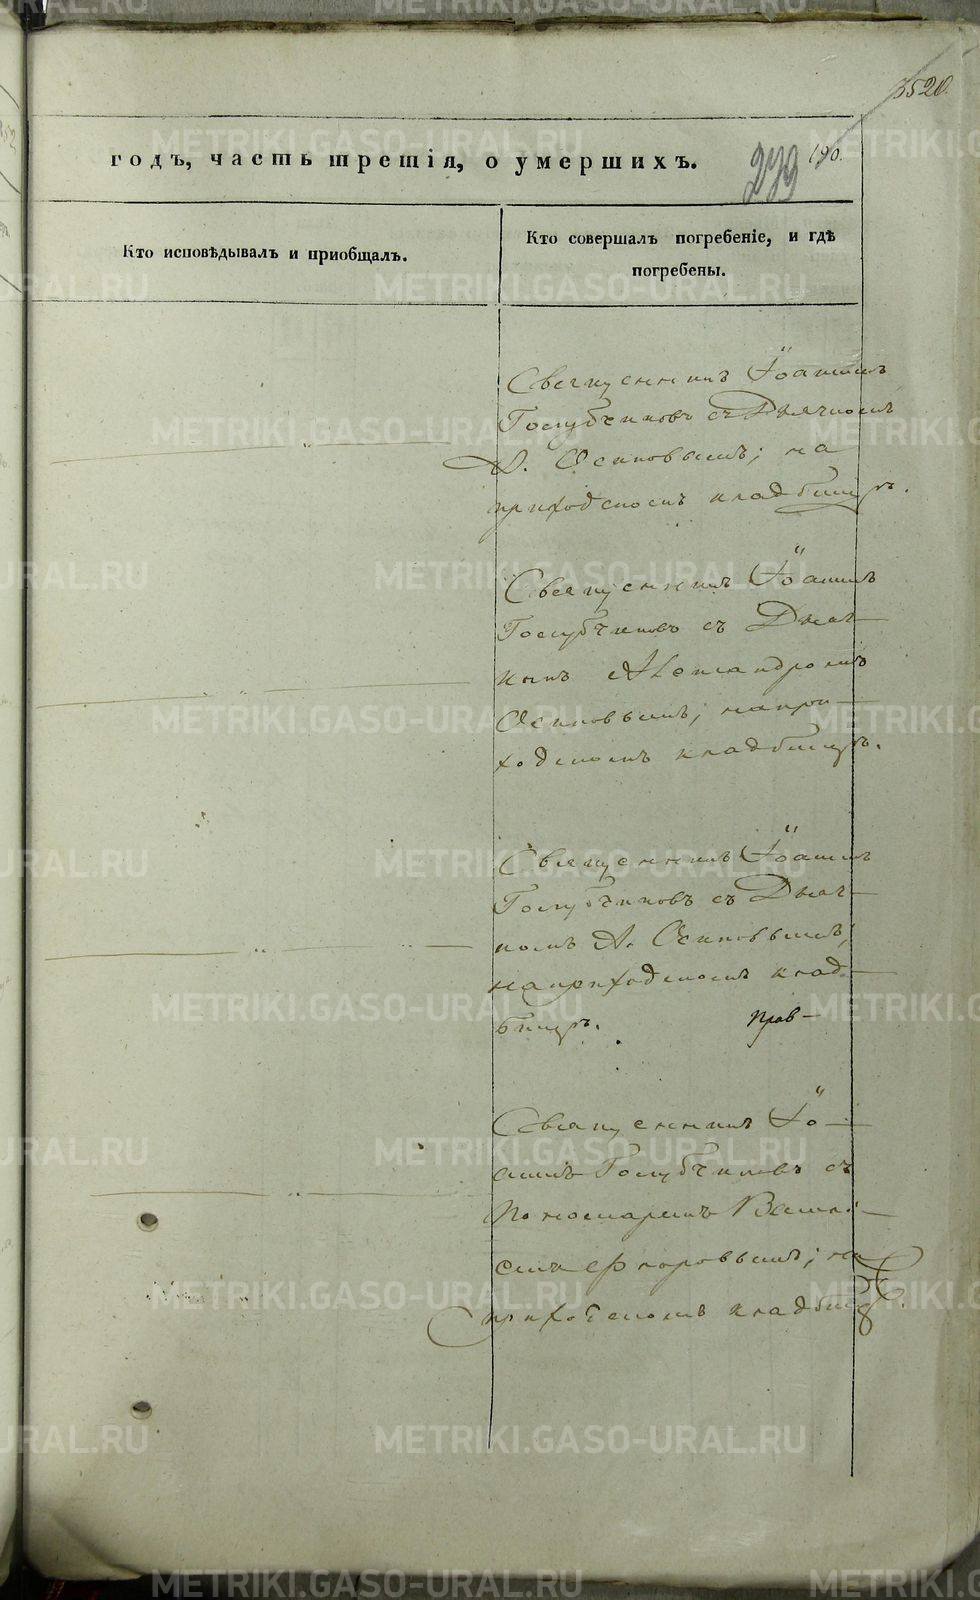 3520.
годъ, часть третія, о умершихъ.
190.
239
Кто исповѣдывалъ и пріобщалъ.
Кто совершалъ погребеніе, и гдѣ
погребены.
Священникъ Іоаннъ
Голубчиковъ съ Дьячкомъ
А. Осиповымъ; на
приходскомъ кладбищѣ.
Священникъ Іоаннъ
Голубчиковъ съ Дьяч-
комъ Александромъ
Осиповымъ; на при-
ходскомъ кладбищѣ.
Священникъ Іоаннъ
Голубчиковъ съ Дьяч-
комъ А. Осиповымъ;
на приходскомъ клад-
бищѣ.
Прав-
Священникъ Іо-
аннъ Голубчиковъ съ
Пономаремъ Васи-
емъ Флоровымъ; на
приходскомъ кладбищѣ.
METRIKI.GASO-URAL.RU